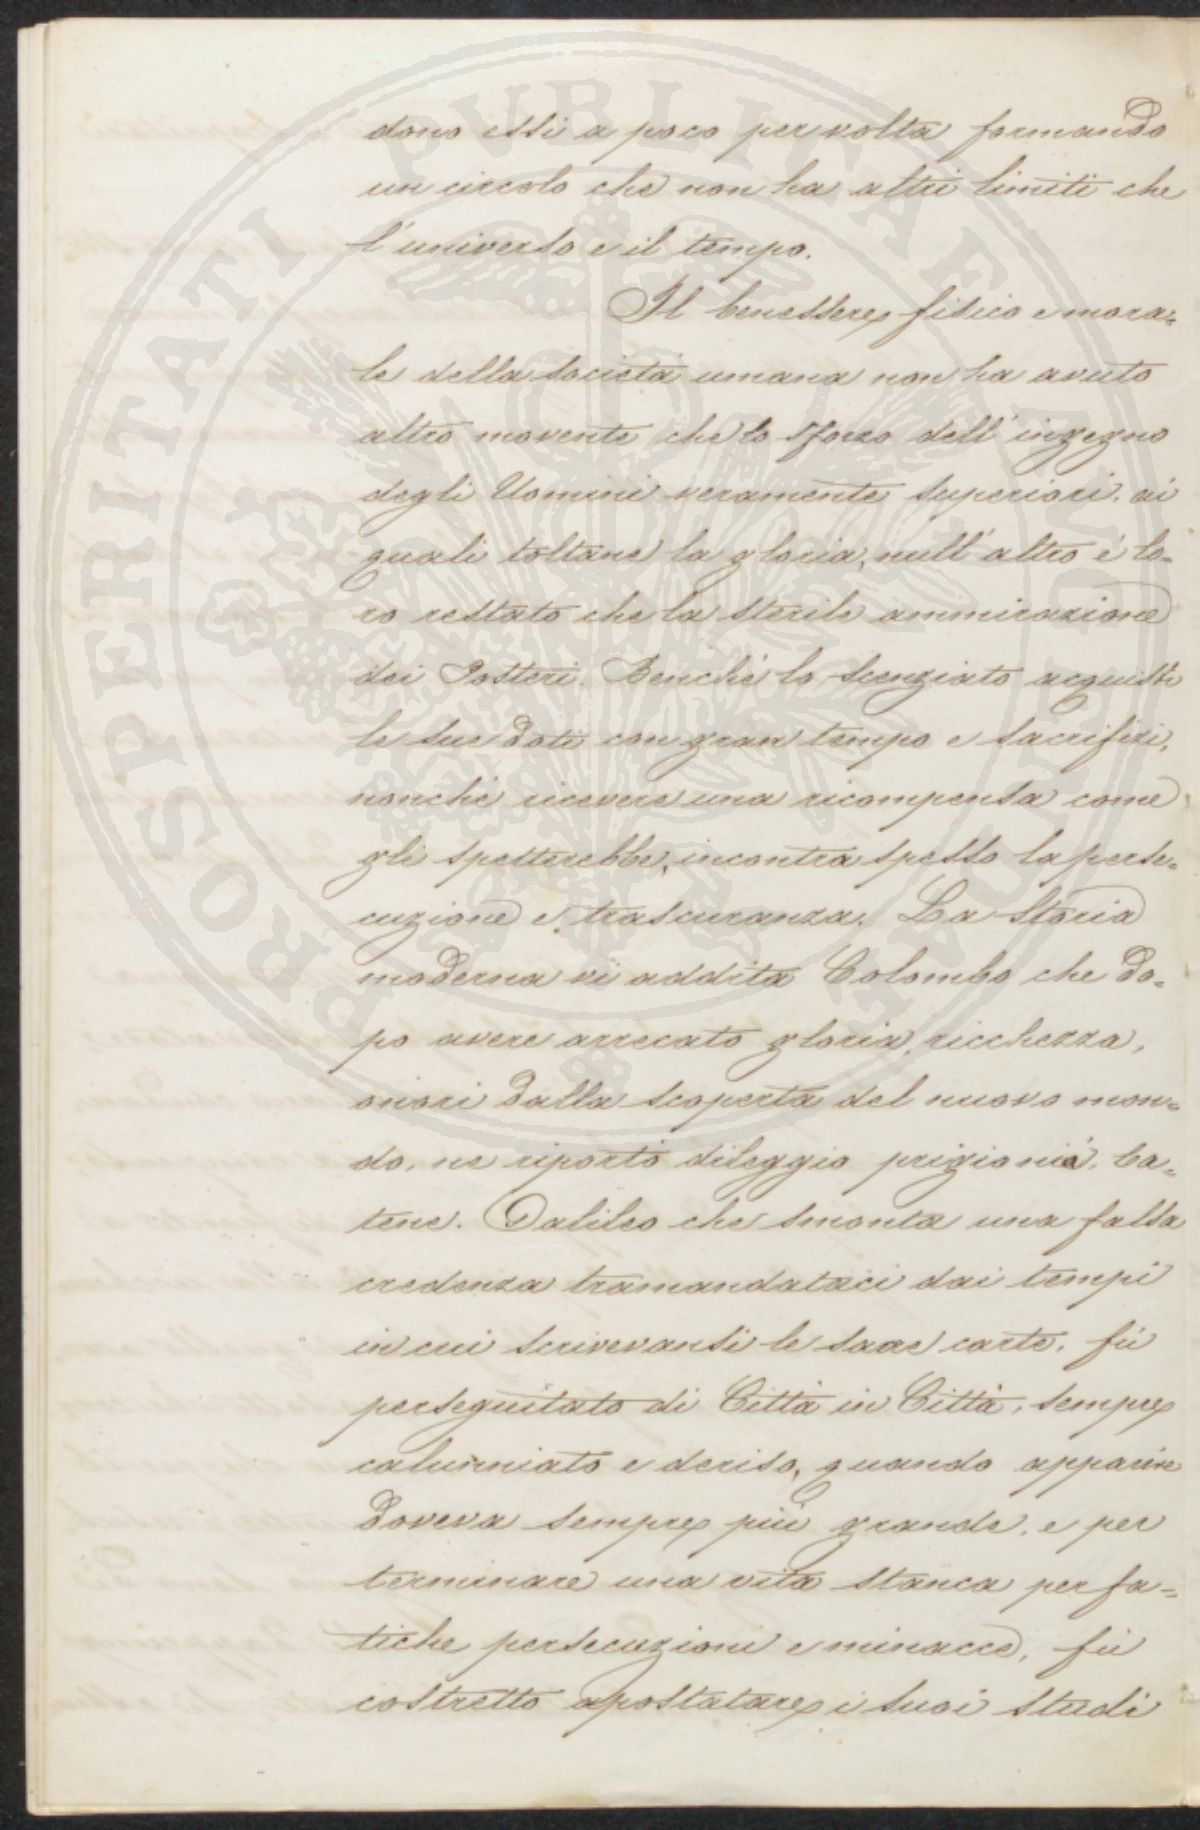 dono essi a poco per volta formando
un circolo che non ha altri limiti che
l'universo e il tempo.
Il benessere fisico e mora=
le della società umana non ha avuto
altro movente che lo sforzo dell'ingegno
degli Uomini veramente superiori, ai
quali toltane la gloria, null'altro è lo=
ro restato che la sterile ammirazione
dei Posteri. Benchè lo scenziato acquisti
le sue doti con gran tempo e sacrifizi,
nonchè ricevere una ricompensa come
gli spetterebbe, incontra spesso la perse=
cuzione e trascuranza. La Storia
moderna vi addita Colombo che do=
po avere arrecato gloria, ricchezza,
onori dalla scoperta del nuovo mon=
do, ne riportò dileggio prigionia, ca=
tene. Galileo che smonta una falsa
credenza tramandataci dai tempi
in cui scrivevansi le sacre carte, fù
perseguitato di Città in Città, sempre
calunniato e deriso, quando apparire
doveva sempre più grande, e per
terminare una vita stanca per fa=
tiche persecuzioni e minacce, fù
costretto apostatare i suoi studi
PROSPERITATI PUBLICAE